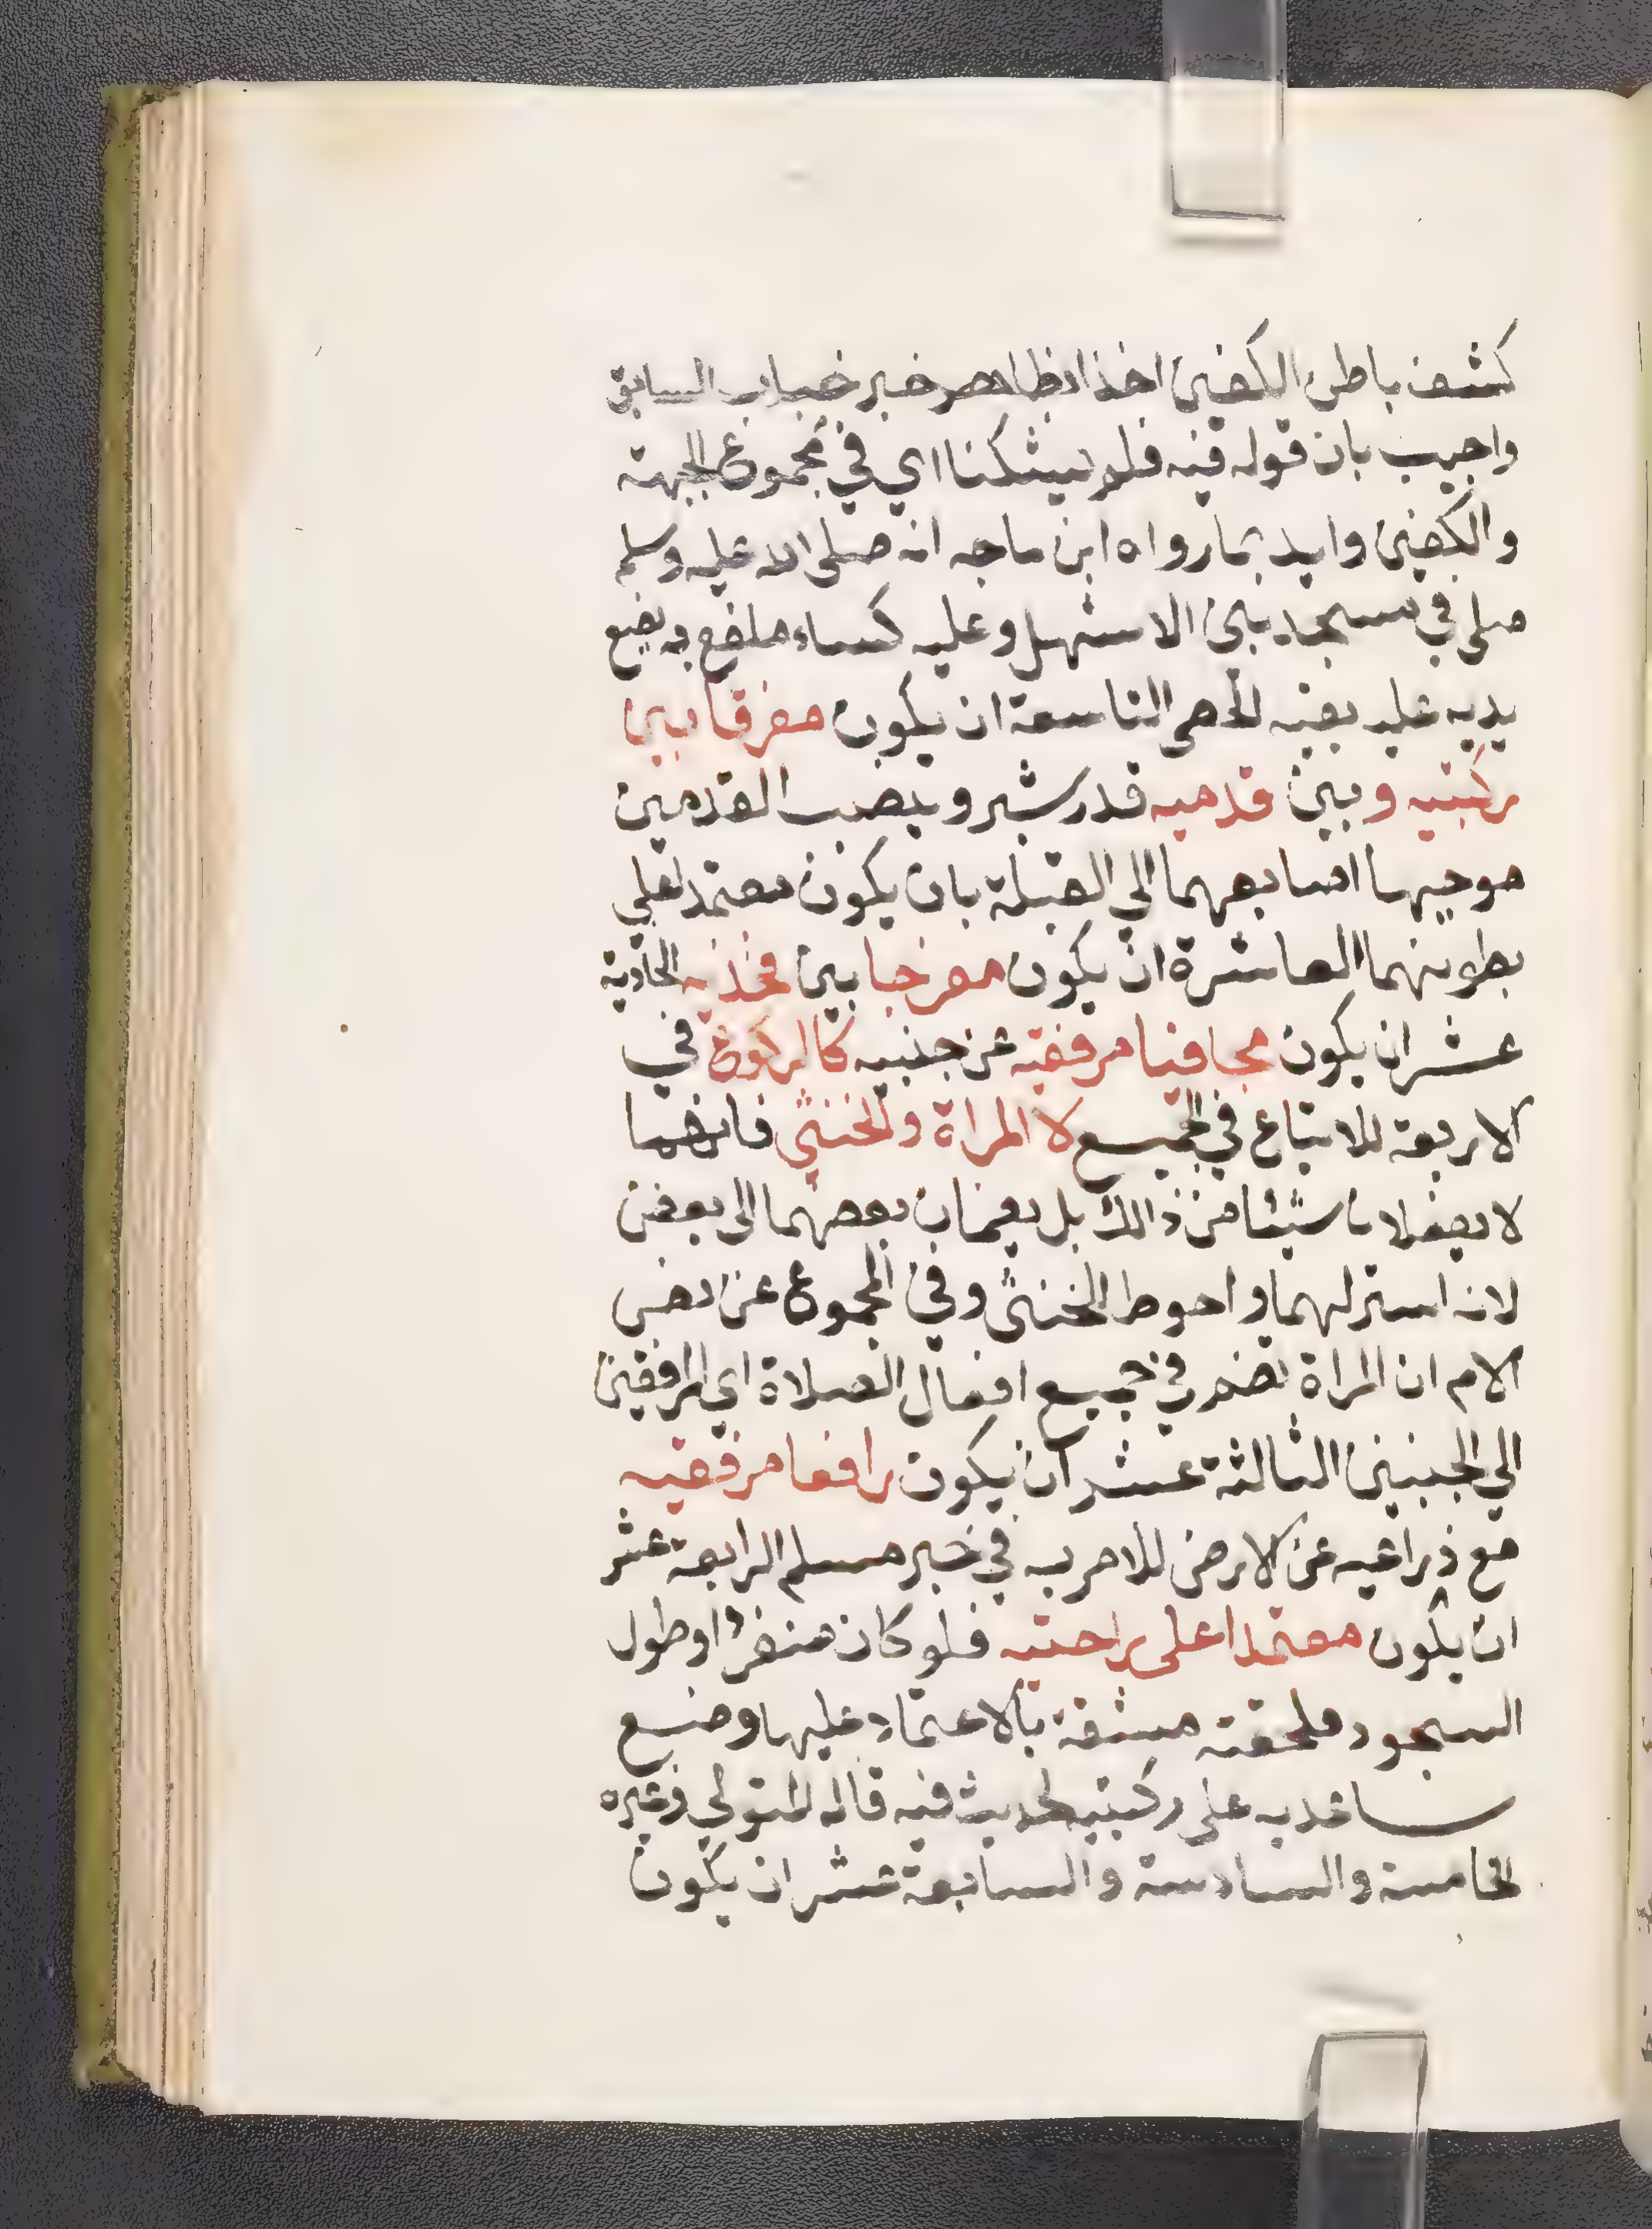 كشف باطن الكفين اخذا بظاهر خبر خباب السابق
واجيب بان قوله فيه فلم يشكنا اي في مجموع الجبهة
والكفين وايد بما رواه ابن ماجه انه صلى الله عليه وسلم
صلى في مسجد بني الاشهل وعليه كساء ملفع به يضع
يديه عليه يقيه الحصى التاسعة ان يكون مفرقا بين
ركبتيه وبين قدميه قدر شبر وينصب القدمين
موجهها اصابعهما الي القبلة بان يكون معتمدا علي
بطونهما العاشرة ان يكون مفرجا بين فخذيه الحادية
عشر ان يكون مجافيا مرفقيه عن جنبيه كالركوع في
الاربعة للاتباع في الجميع لا المراة والخنثي فانهما
لا يفعلان شيئا من ذالك بل يضمان بعضهما الى بعض
لانه استر لهما واحوط للخنثى وفي المجموع عن نص
الام ان المراة تضم في جميع افعال الصلاة اي المرفقين
الي الجنبين الثالثة عشر ان يكون رافعا مرفقيه
مع ذراعيه عن الارض للامر به في خبر مسلم الرابعة عشر
ان يكون معتمدا على راحتيه فلو كان منفردا وطول
السجود فلحقته مشقة بالاعتماد عليها وضع
ساعديه على ركبتيه لحديث فيه قاله المتولي وغيره
الخامسة والسادسة والسابعة عشر ان يكون